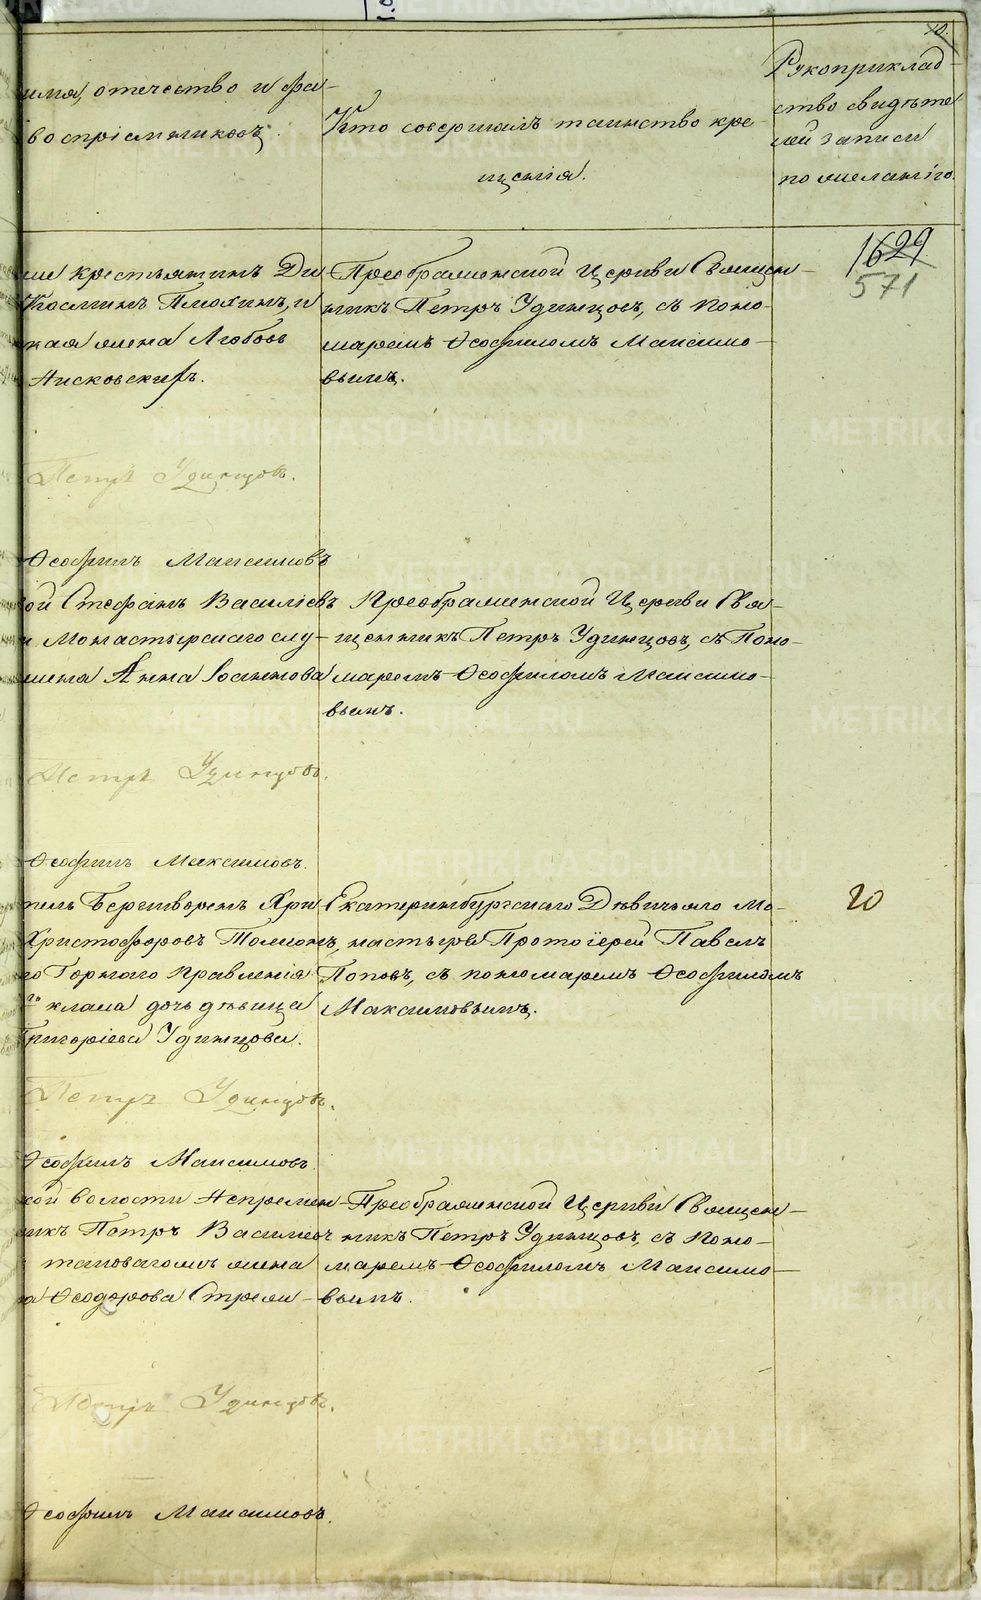 имя, отечество и фа-
воспріемниковъ.
Кто совершалъ таинство кре-
щенія.
Рукоприклад-
ство свидѣте
лей записи
по желанію.
1629
571
крестьянинъ Ди
Плохинъ, и
кая жена Любовь
Преображенской Церкви Священ-
никъ Петръ Удинцовъ, съ Поно-
маремъ Ѳеофиломъ Максимо-
вымъ.
Петръ Удинцовъ.
Ѳеофилъ Максимовъ
ой Стефанъ Василіевъ
и Монастырскаго слу-
жена Анна Іоаннова
Преображенской Церкви Свя-
щенникъ Петръ Удинцовъ, съ Поно-
маремъ Ѳеофиломъ Максимо-
вымъ.
Петръ Удинцовъ.
Ѳеофилъ Максимовъ.
Христофоровъ
го Горнаго Правленія
го класса дочь дѣвица
Григоріева Удинцова.
Екатеринбургскаго Дѣвичьяго Мо-
настыря Протоіерей Павелъ
Поповъ, съ пономаремъ Ѳеофиломъ
Максимовымъ.
20
Петръ Удинцовъ.
Ѳеофилъ Максимовъ.
кой волости
икъ Петръ Василіевъ
жена
а Ѳеодорова Стрем-
Преображенской Церкви Священ-
никъ Петръ Удинцовъ, съ Поно-
маремъ Ѳеофиломъ Максимо-
вымъ.
Петръ Удинцовъ.
Ѳеофилъ Максимовъ.
METRIKI.GASO-URAL.RU